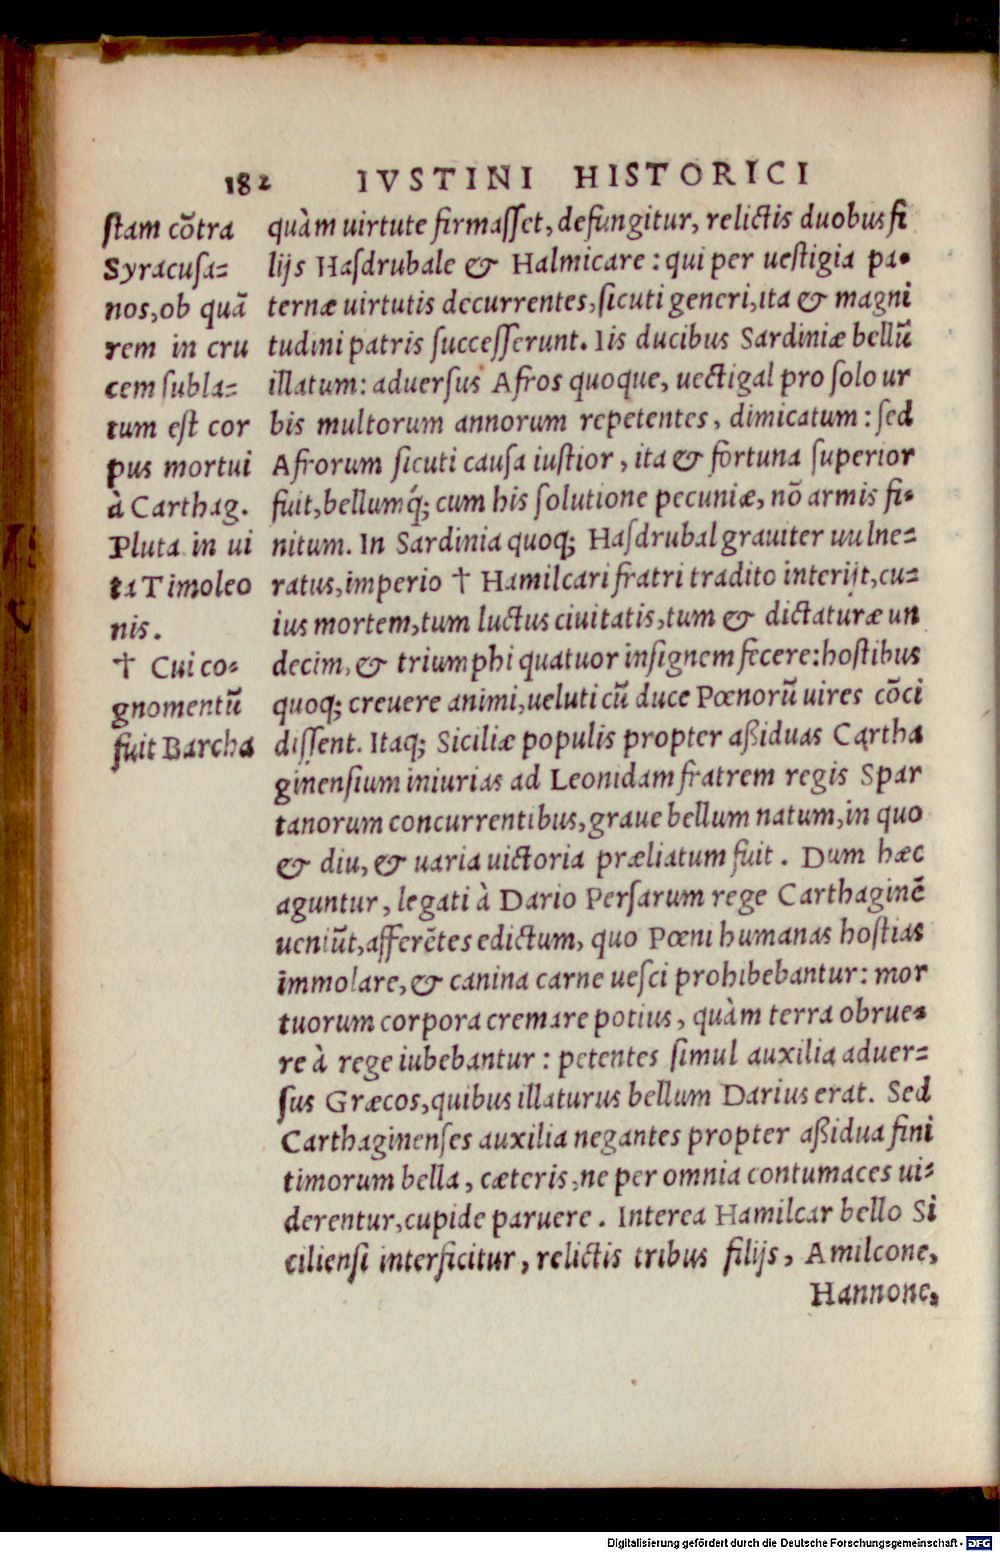 182 IVSTINI HISTORICI
ſtam cõtra
Syracuſa=
nos, ob quã
rem in cru
cem ſubla=
tum eſt cor
pus mortui
à Carthag.
Pluta. in ui
ta Timoleo
nis.
† Cui co-
gnomentũ
fuit Barcha
quàm uirtute firmaſſet, defungitur, relictis duobus fi
lijs Haſdrubale & Halmicare: qui per ueſtigia pa-
ternæ uirtutis decurrentes, ſicuti generi, ita & magni
tudini patris ſucceſſerunt. Iis ducibus Sardiniæ bellũ
illatum: aduerſus Afros quoque, uectigal pro ſolo ur
bis multorum annorum repetentes, dimicatum: ſed
Afrorum ſicuti cauſa iuſtior, ita & fortuna ſuperior
fuit, bellumq́; cum his ſolutione pecuniæ, nõ armis fi-
nitum. In Sardinia quoq; Haſdrubal grauiter uulne=
ratus, imperio † Hamilcari fratri tradito interijt, cu=
ius mortem, tum luctus ciuitatis, tum & dictaturæ un
decim, & triumphi quatuor inſignem fecere: hoſtibus
quoq; creuere animi, ueluti cũ duce Pœnorũ uires cõci
diſſent. Itaq; Siciliæ populis propter aßiduas Cartha
ginenſium iniurias ad Leonidam fratrem regis Spar
tanorum concurrentibus, graue bellum natum, in quo
& diu, & uaria uictoria præliatum fuit. Dum hæc
aguntur, legati à Dario Perſarum rege Carthaginẽ
ueniũt, afferẽtes edictum, quo Pœni humanas hoſtias
immolare, & canina carne ueſci prohibebantur: mor
tuorum corpora cremare potius, quàm terra obrue-
re à rege iubebantur: petentes ſimul auxilia aduer=
ſus Græcos, quibus illaturus bellum Darius erat. Sed
Carthaginenſes auxilia negantes propter aßidua fini
timorum bella, cæteris, ne per omnia contumaces ui=
derentur, cupide paruere. Interea Hamilcar bello Si
cilienſi interficitur, relictis tribus filijs, Amilcone,
Hannone,
Digitalisierung gefördert durch die Deutsche Forschungsgemeinschaft - DFG